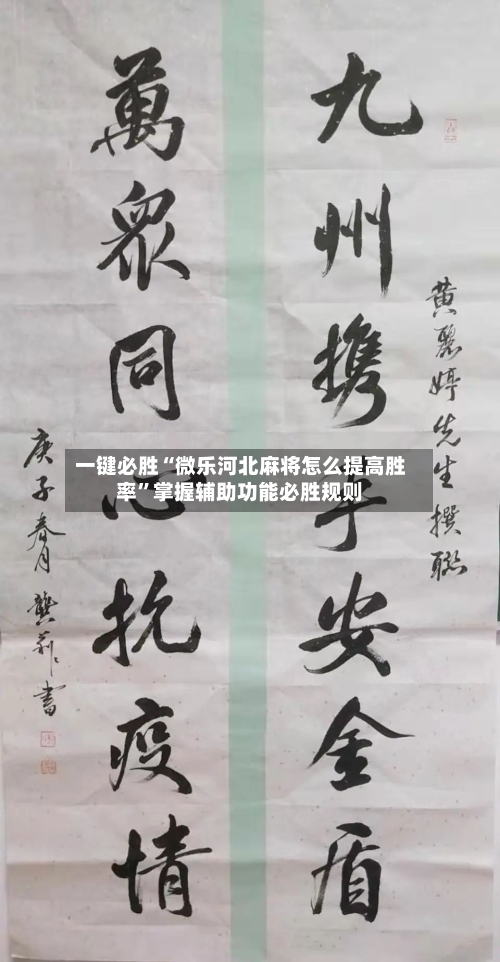 九州携手安金盾
黄丽婷先生撰联
萬眾同心抗疫情
庚子春月龔莉书
一键必胜“微乐河北麻将怎么提高胜
率”掌握辅助功能必胜规则